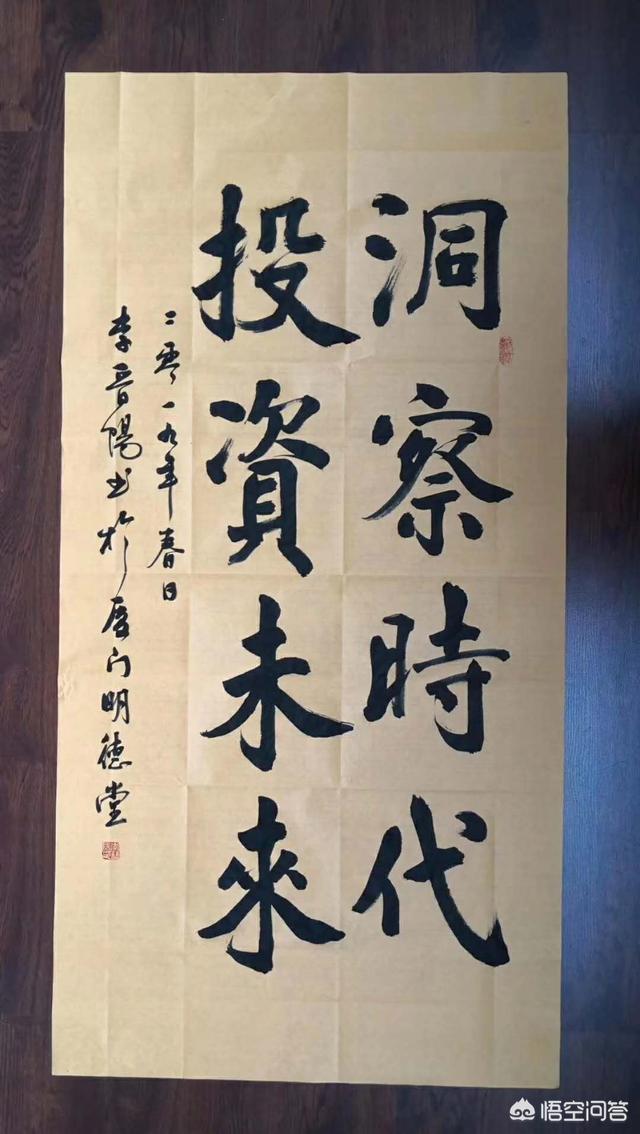 洞察時代
投資未來
二零一九年春日
李晋陽书於厦门明德堂
悟空问答